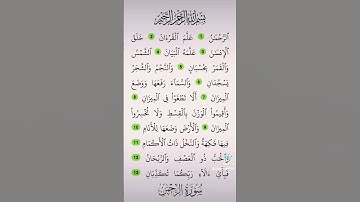 بِسْمِ ٱللَّهِ ٱلرَّحْمَٰنِ ٱلرَّحِيمِ
ٱلرَّحْمَٰنُ 1 عَلَّمَ ٱلْقُرْءَانَ 2 خَلَقَ
ٱلْإِنسَٰنَ 3 عَلَّمَهُ ٱلْبَيَانَ 4 ٱلشَّمْسُ
وَٱلْقَمَرُ بِحُسْبَانٍ 5 وَٱلنَّجْمُ وَٱلشَّجَرُ
يَسْجُدَانِ 6 وَٱلسَّمَآءَ رَفَعَهَا وَوَضَعَ
ٱلْمِيزَانَ 7 أَلَّا تَطْغَوْا۟ فِى ٱلْمِيزَانِ 8
وَأَقِيمُوا۟ ٱلْوَزْنَ بِٱلْقِسْطِ وَلَا تُخْسِرُوا۟
ٱلْمِيزَانَ 9 وَٱلْأَرْضَ وَضَعَهَا لِلْأَنَامِ 10
فِيهَا فَٰكِهَةٌ وَٱلنَّخْلُ ذَاتُ ٱلْأَكْمَامِ 11
وَٱلْحَبُّ ذُو ٱلْعَصْفِ وَٱلرَّيْحَانُ 12
فَبِأَىِّ ءَالَآءِ رَبِّكُمَا تُكَذِّبَانِ 13
سُورَةُ ٱلرَّحْمَٰن